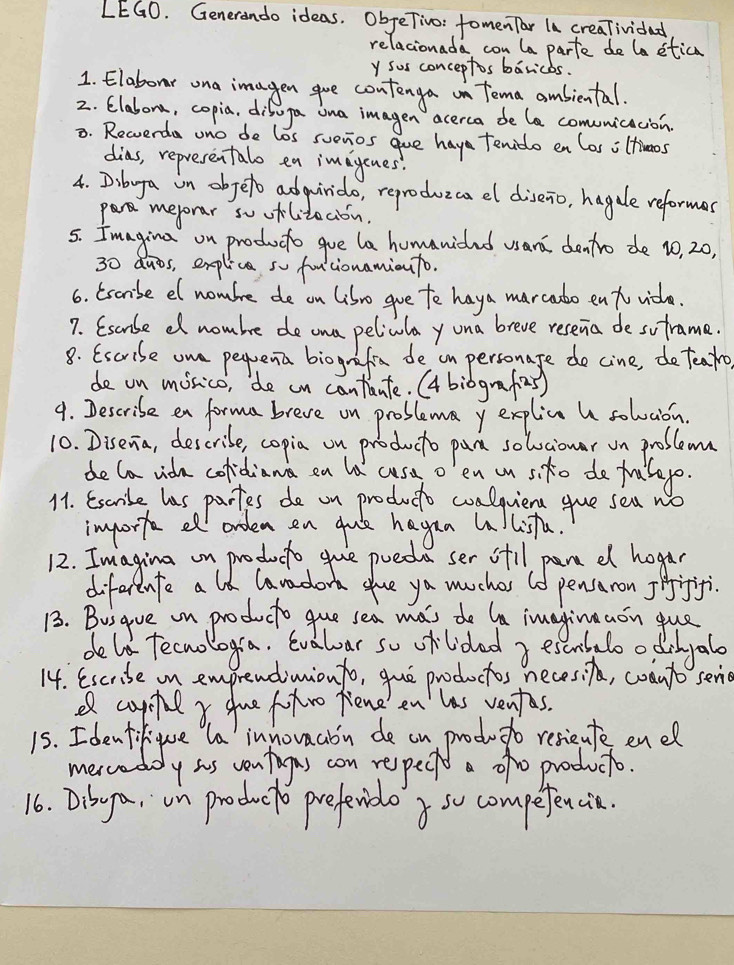 LEGO. Generando ideas. Objetivo: fomentar la creatividad
relacionada con la parte de la ética
y sus conceptos básicos.
1. Elaborar una imagen que contenga un tema ambiental.
2. Elabora, copia, dibuja una imagen acerca de la comunicación.
3. Recuerda uno de los sueños que haya tenido en los últimos
días, represéntalo en imágenes.
4. Dibuja un objeto adquirido, reproduzca el diseño, hagale reformas
para mejorar su utilización.
5. Imagina un producto que la humanidad usará dentro de 10, 20,
30 años, explica su funcionamiento.
6. Escribe el nombre de un libro que te haya marcado en tu vida.
7. Escribe el nombre de una película y una breve reseña de su trama.
8. Escribe una pequeña biografía de un personaje de cine, de teatro,
de un músico, de un cantante. (4 biografías)
9. Describe en forma breve un problema y explica la solución.
10. Diseña, describe, copia un producto para solucionar un problema
de la vida cotidiana en la casa o en un sitio de trabajo.
11. Escribe las partes de un producto cualquiera que sea no
importa el orden en que hagan la lista.
12. Imagina un producto que pueda ser útil para el hogar
diferente a la lavadora que ya muchos lo pensaron jijijiji.
13. Busque un producto que sea más de la imaginación que
de la tecnología. Evaluar su utilidad y escribalo o dibujalo
14. Escribe un emprendimiento, qué productos necesita, cuánto seria
el capital y que futuro tiene en las ventas.
15. Identifique la innovación de un producto resiente en el
mercado y sus ventajas con respecto a otro producto.
16. Dibuja, un producto preferido y su competencia.